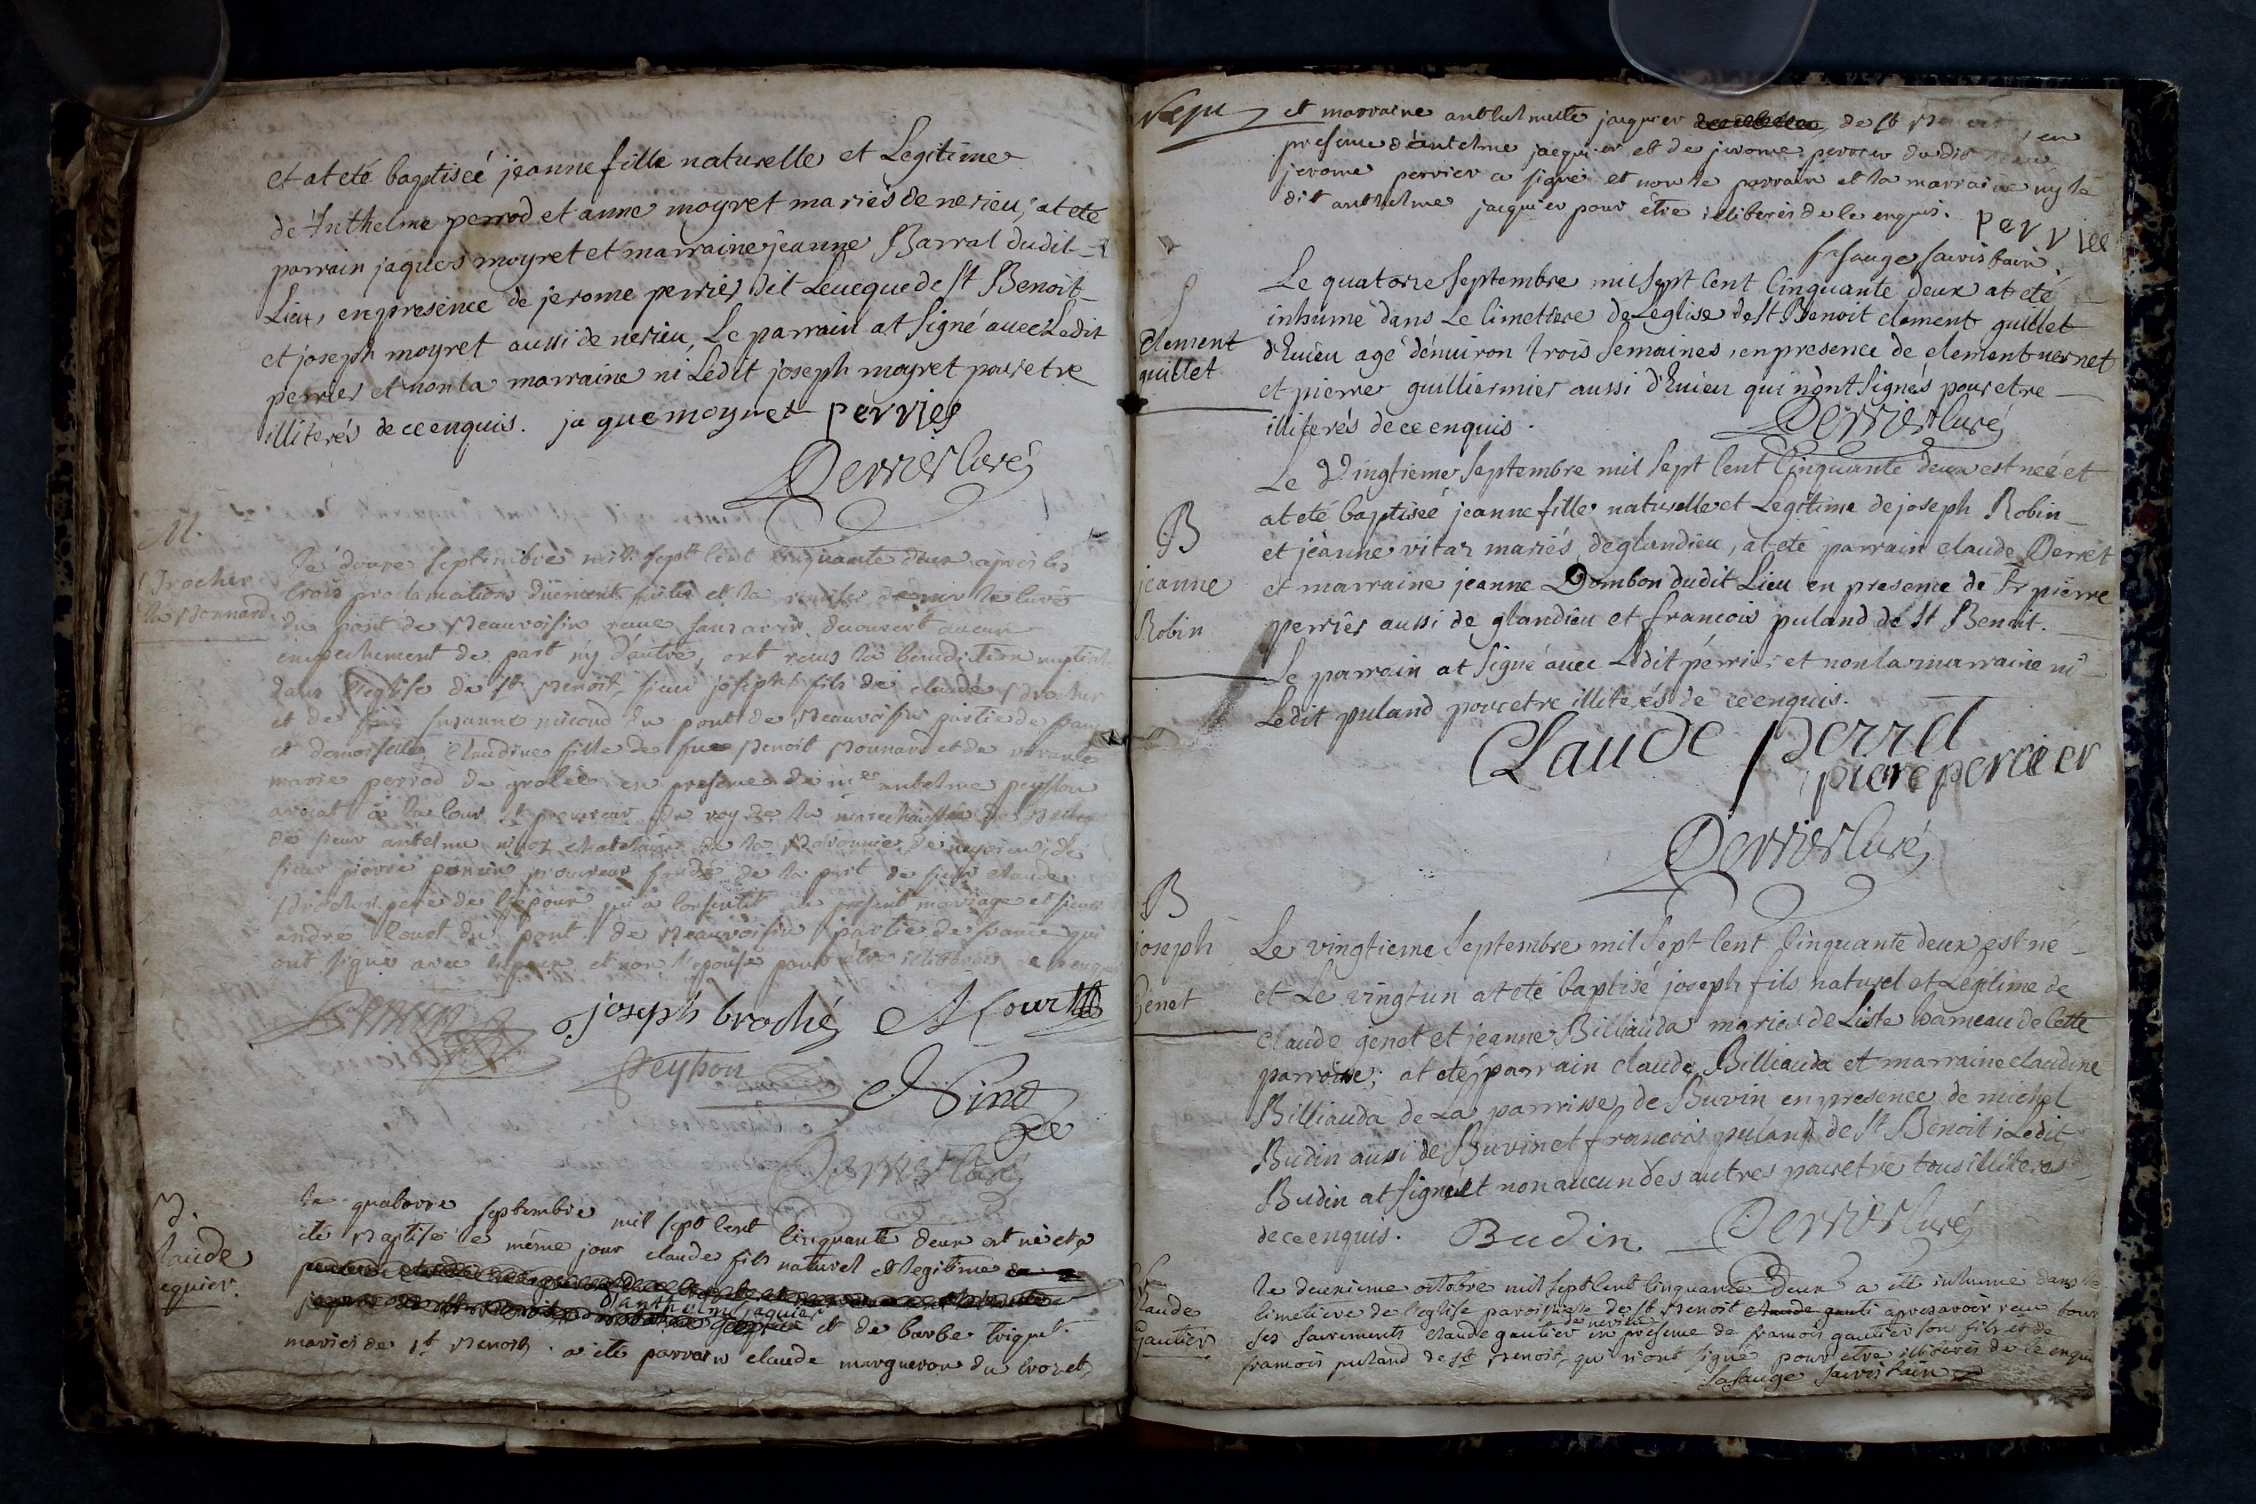 et at eté baptiseé jeanne fille naturelle et Legitime
de Anthelme perrod et anne moyret mariés de nerieu, at eté
parrain jaques moyret et marraine jeanne Barral dudit
Lieu, en presence de jerome perrier dit Leueque de St Benoit
et joseph moyret aussi de nerieu, Le parrain at signé auec Ledit
perrier et non la marraine ni Ledit joseph moyret pour etre
illiterés de ce enquis. jaque moyret perrier
Perrier Curé
M.
Brochier
La Monnard
Le douze septembre mil sept cent cinquante deux apres les
trois proclamations düement faites et la remise de mr le curé
du pont de Beauvoisin reçue sans avoir decouvert aucun
empechement de part ny d'autre, ont reçus la benediction nuptiale
dans l'eglise de st Benoit, sieur joseph fils de claude Brochier
et de susanne nicoud du pont de Beauvoisin partie de france
et demoiselle claudine fille de feu Benoit Monnard et de vivante
marie perrod de grolée en presence de me antelme peysson
avocat à la cour et procureur du roy de la marechaussée de Belley
de sieur antelme chatelain de la Baronnie de
sieur pierre procureur fondé de la part de sieur claude
Brochier pere de l'epoux qui a consentit au present mariage et sieur
andre Court du pont de Beauvoisin partie de france qui
ont signé avec l'epoux et non l'epouse pour etre illiterée de ce enquis
joseph brochié A Court
Peysson
Perrier Curé
B.
Claude
jequier.
Le quatorze septembre mil sept cent cinquante deux est né et a
ete Baptisé le même jour claude fils naturel et legitime
d'anthelme jaquier
et de barbe triquet
mariés de st Benoit. a ete parrain claude margueron du crozet,
et marraine anthelmette jaquier de st Benoit, en
presence d'antelme jacquier et de jerome perrier dudit lieu
jerome perrier a signé et non le parrain et la marraine ny le
dit anthelme jacquier pour etre illiterés de ce enquis.
perrier
Clement
guillet
Le quatorze Septembre mil sept Cent Cinquante deux at eté
inhumé dans Le Cimetiere de Leglise de St Benoit clement guillet
d'Euieu agé d'enuiron trois Semaines, en presence de clement uernet
et pierre guilliermier aussi d'Euieu qui n'ont signés pour etre
illiterés de ce enquis.
Perrier Curé
B
jeanne
Robin
Le Vingtieme Septembre mil sept Cent Cinquante deux est neé et
at eté baptiseé jeanne fille naturelle et Legitime de joseph Robin
et jeanne vitaz mariés de glandieu, at eté parrain claude Perret
et marraine jeanne Dombon dudit Lieu en presence de Fr pierre
perrier aussi de glandieu et francois puland de St Benoit.
Le parrain at signé auec Ledit perrier et non la marraine ni
Ledit puland pour etre illiterés de ce enquis.
Claude perret
piere perrier
Perrier Curé
B
joseph
Genet
Le vingtieme Septembre mil sept Cent Cinquante deux est né
et Le vingt un at eté baptisé joseph fils naturel et Legitime de
Claude genet et jeanne Billiauda mariés de Liste hameau de Cette
parroisse; at eté parrain claude Billiauda et marraine claudine
Billiauda de La parroisse de Buvin en presence de michel
Budin aussi de Buvin et francois puland de St Benoit; Ledit
Budin at signé et non aucun des autres pour etre tous illiterés
de ce enquis. Budin Perrier Curé
Claude
Gautier
Le deuxieme octobre mil sept cent cinquante deux a ete inhumé dans le
cimetiere de l'eglise paroissiale de st Benoit claude gauti apres avoir reçu tous
ses sacrements claude gautier en presence de francois gautier son fils et de
francois puland de st Benoit, qui n'ont signé pour etre illiterés de ce enquis